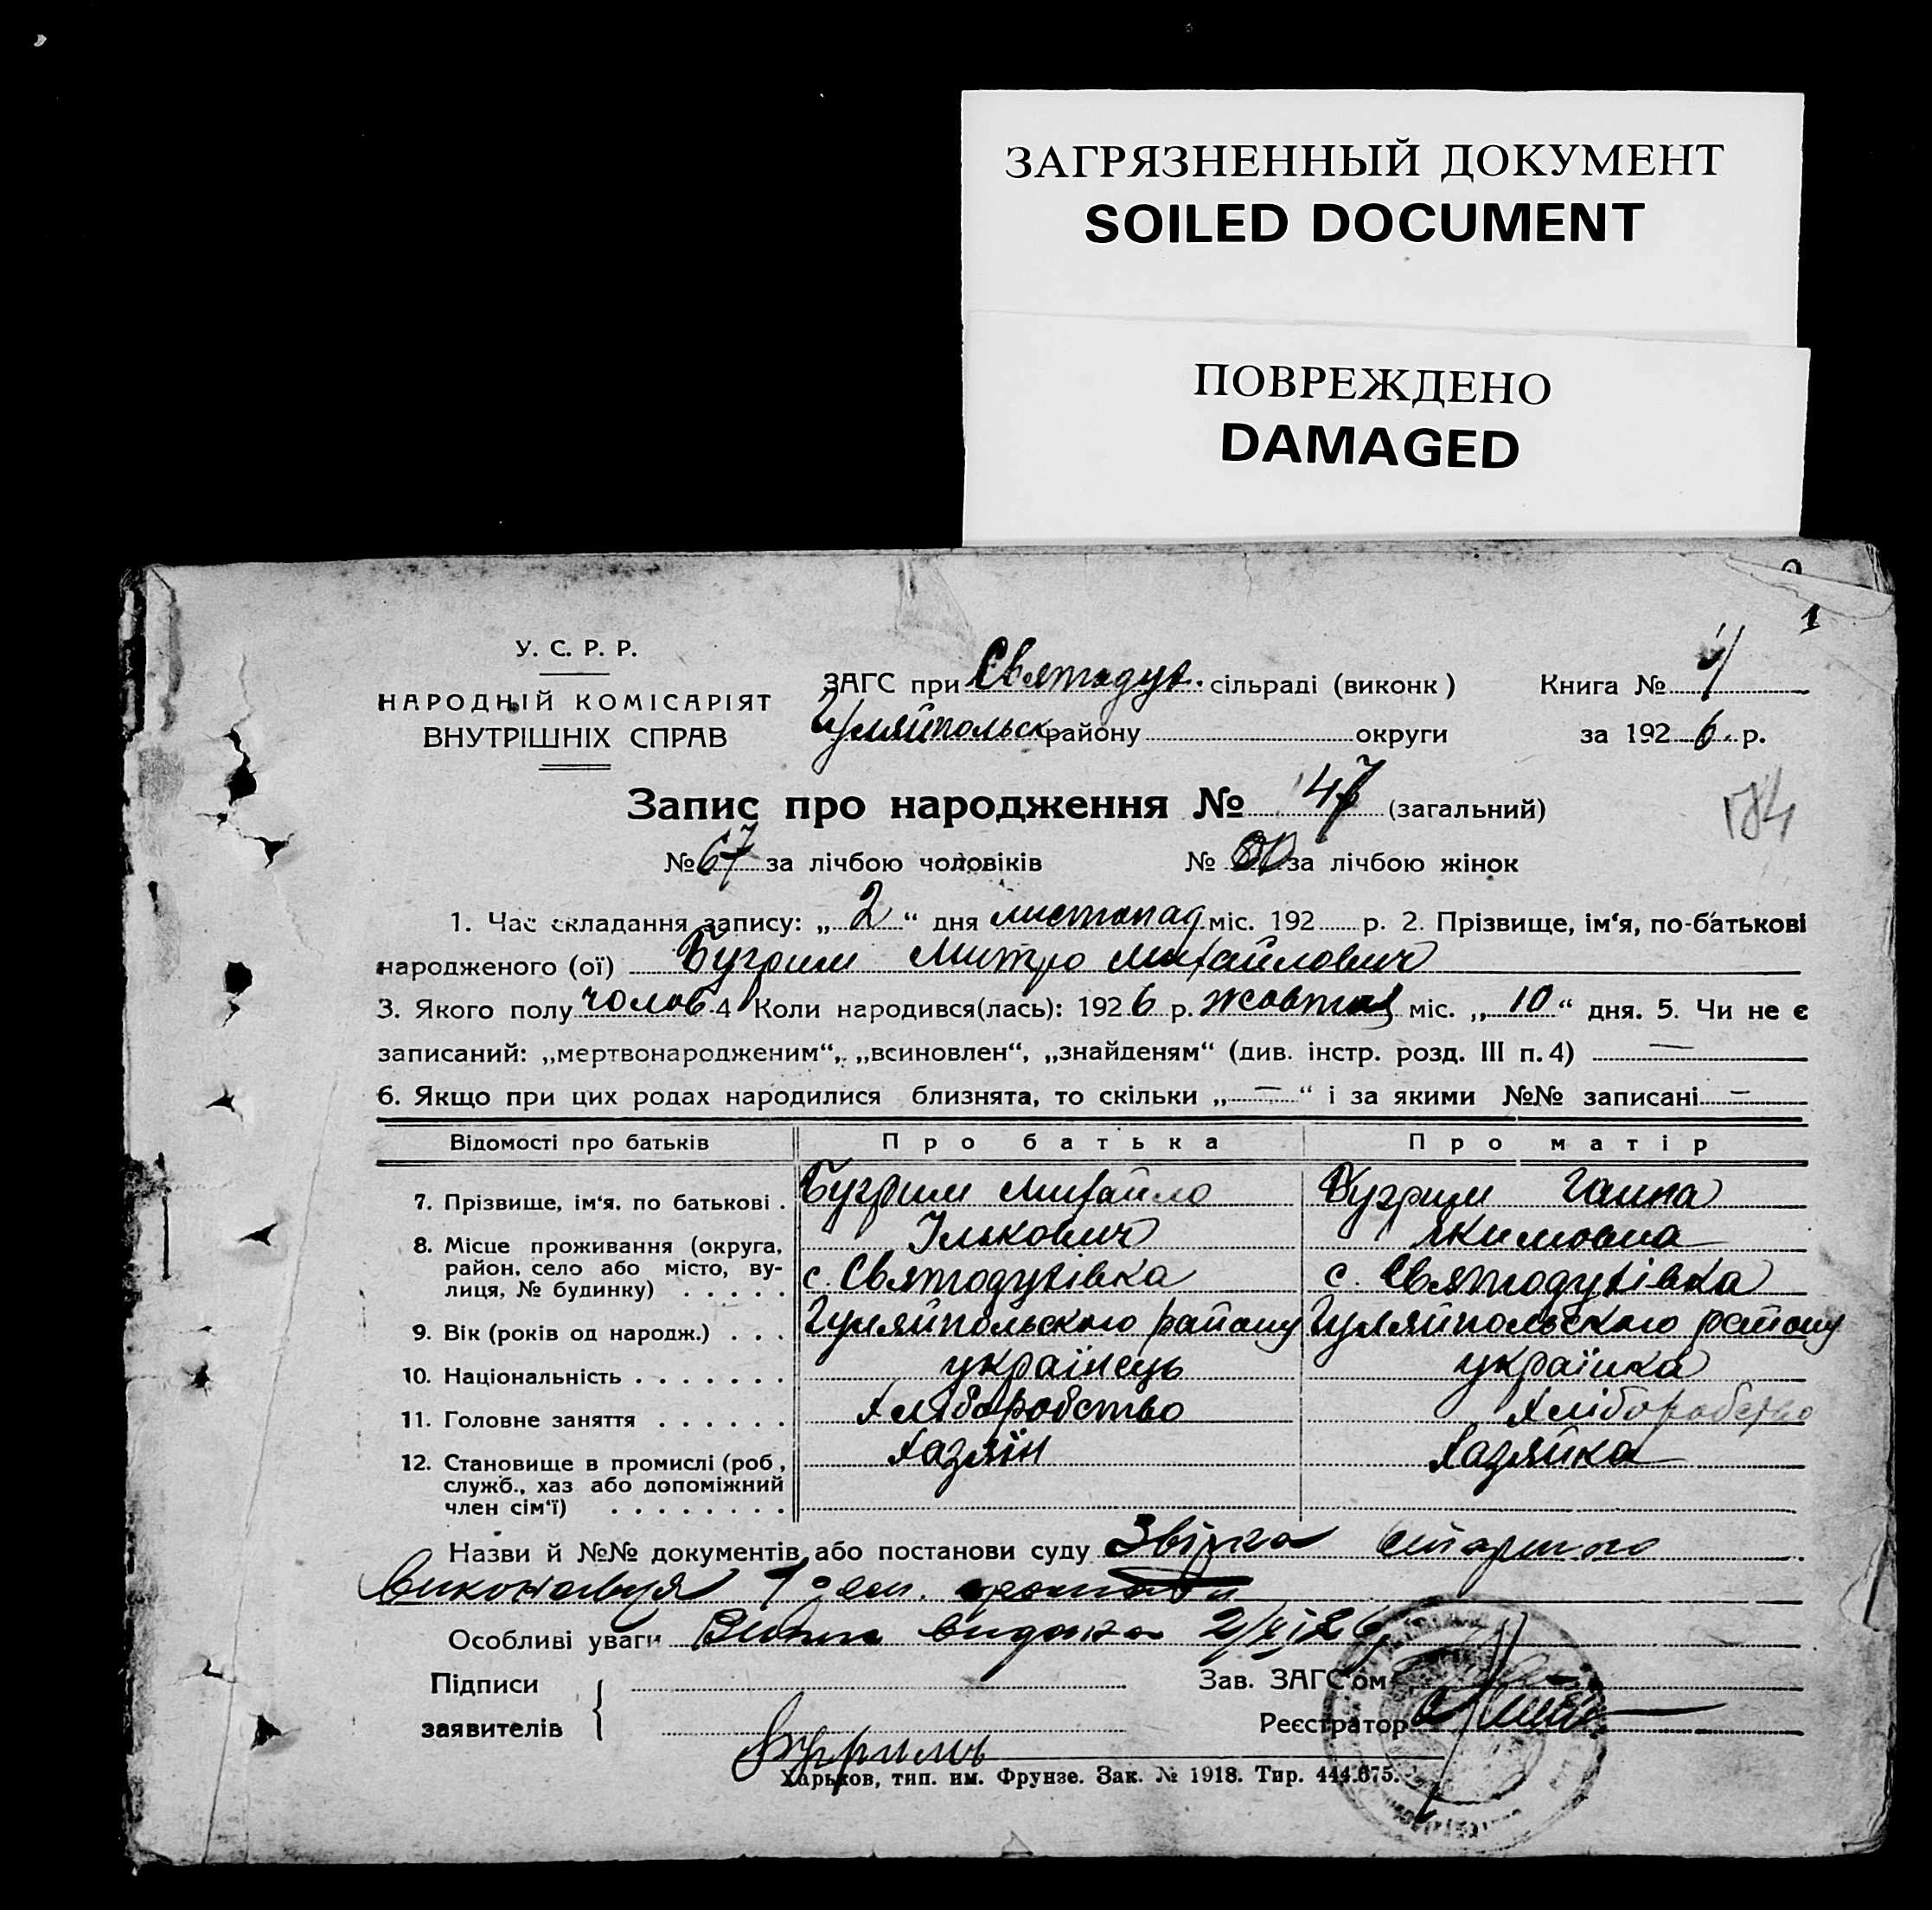 ЗАГРЯЗНЕННЫЙ ДОКУМЕНТ
SOILED DOCUMENT
ПОВРЕЖДЕНО
DAMAGED
1
У. С. Р. Р.
НАРОДНІЙ КОМІСАРІЯТ
ВНУТРІШНІХ СПРАВ
ЗАГС при Святодух. сільраді (виконк) Книга № 4
Гуляйпольск району округи за 1926 р.
Запис про народження № 147 (загальний)
184
№ 67 за лічбою чоловіків № 80 за лічбою жінок
1. Час складання запису: „ 2 “ дня листопад міс. 192 р. 2. Прізвище, ім‘я, по-батькові
народженого (ої) Бугрим Митро Михайлович
3. Якого полу чолов. 4 Коли народився(лась): 1926 р. жовтня міс. „ 10 “ дня. 5. Чи не є
записаний: „мертвонародженим“, „всиновлен“, „знайденям“ (див. інстр. розд. III п. 4) —
6. Якщо при цих родах народилися близнята, то скільки „ — “ і за якими №№ записані —
Відомості про батьків Про батька Про матір
7. Прізвище, ім‘я. по батькові . Бугрим Михайло Бугрим Ганна
Ількович Якимовна
8. Місце проживання (округа,
район, село або місто, ву-
лиця, № будинку) . . . . . с. Святодухівка с. Святодухівка
9. Вік (років од народж.) . . . Гуляйпольского району Гуляйпольского району
10. Національність . . . . . . . українець українка
11. Головне заняття . . . . . . хліборобство хліборобство
12. Становище в промислі (роб, хазяїн хазяйка
служб., хаз або допоміжний
член сім‘ї) . . . . . . . .
Назви й №№ документів або постанови суду Звірка старшого
виконавця 1
Особливі уваги видана 2/XI 26
Підписи Зав. ЗАГС‘ом
заявителів Реєстратор
Бугримь
Харьков, тип. им. Фрунзе. Зак. № 1918. Тир. 444.675.